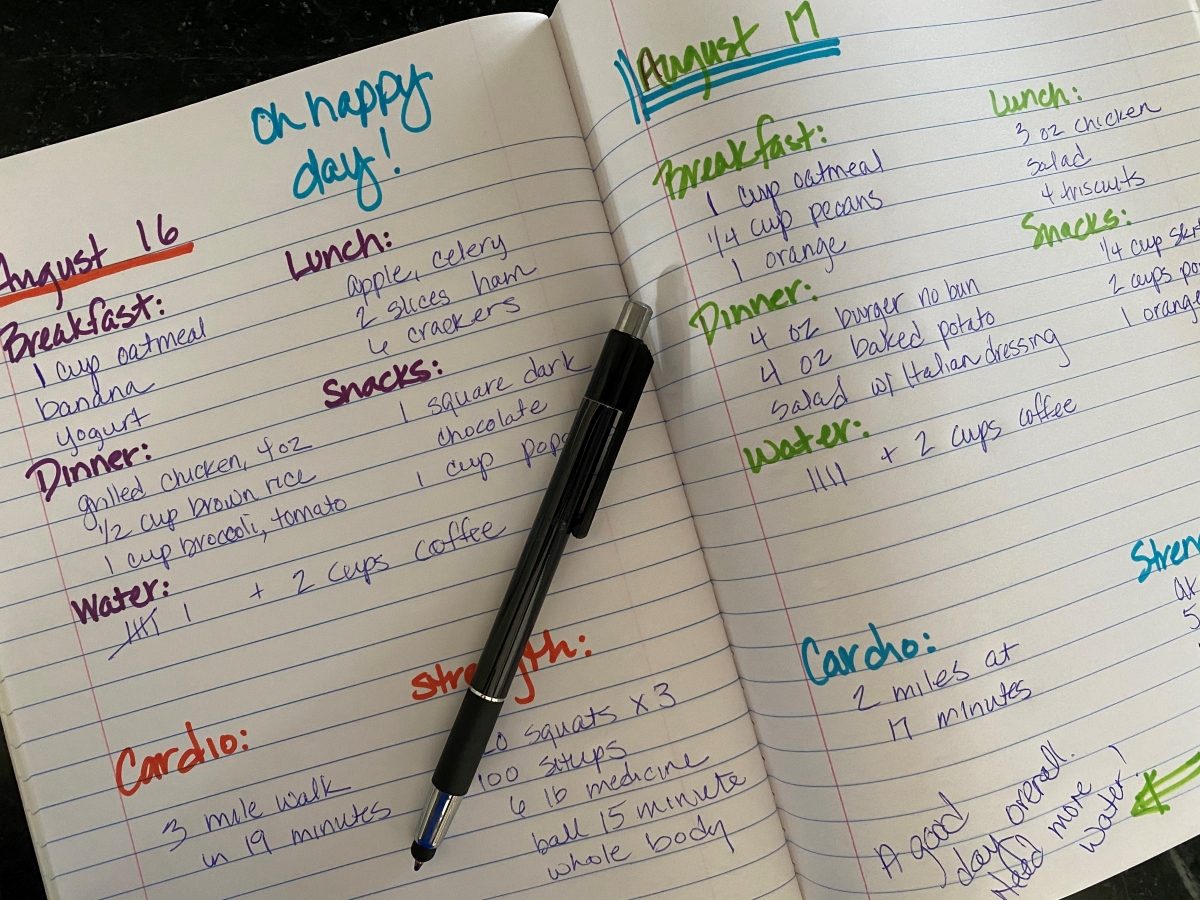 oh happy
day!
August 16
Breakfast:
1 cup oatmeal
banana
yogurt
Lunch:
apple, celery
2 slices ham
6 crackers
Snacks:
1 square dark
chocolate
1 cup
Dinner:
grilled chicken, 4oz
1/2 cup brown rice
1 cup broccoli, tomato
Water:
卌 | + 2 cups coffee
Cardio:
3 mile walk
in 19 minutes
squats x 3
100 situps
6 lb medicine
ball 15 minute
whole body
August 17
Breakfast:
1 cup oatmeal
1/4 cup pecans
1 orange
Lunch:
3 oz chicken
salad
4 triscuits
Snacks:
1/4 cup
2 cups
1 orange
Dinner:
4 oz burger no bun
4 oz baked potato
salad w/ Italian dressing
Water:
|||| + 2 cups coffee
Cardho:
2 miles at
17 minutes
A good
day overall.
Need more
water!